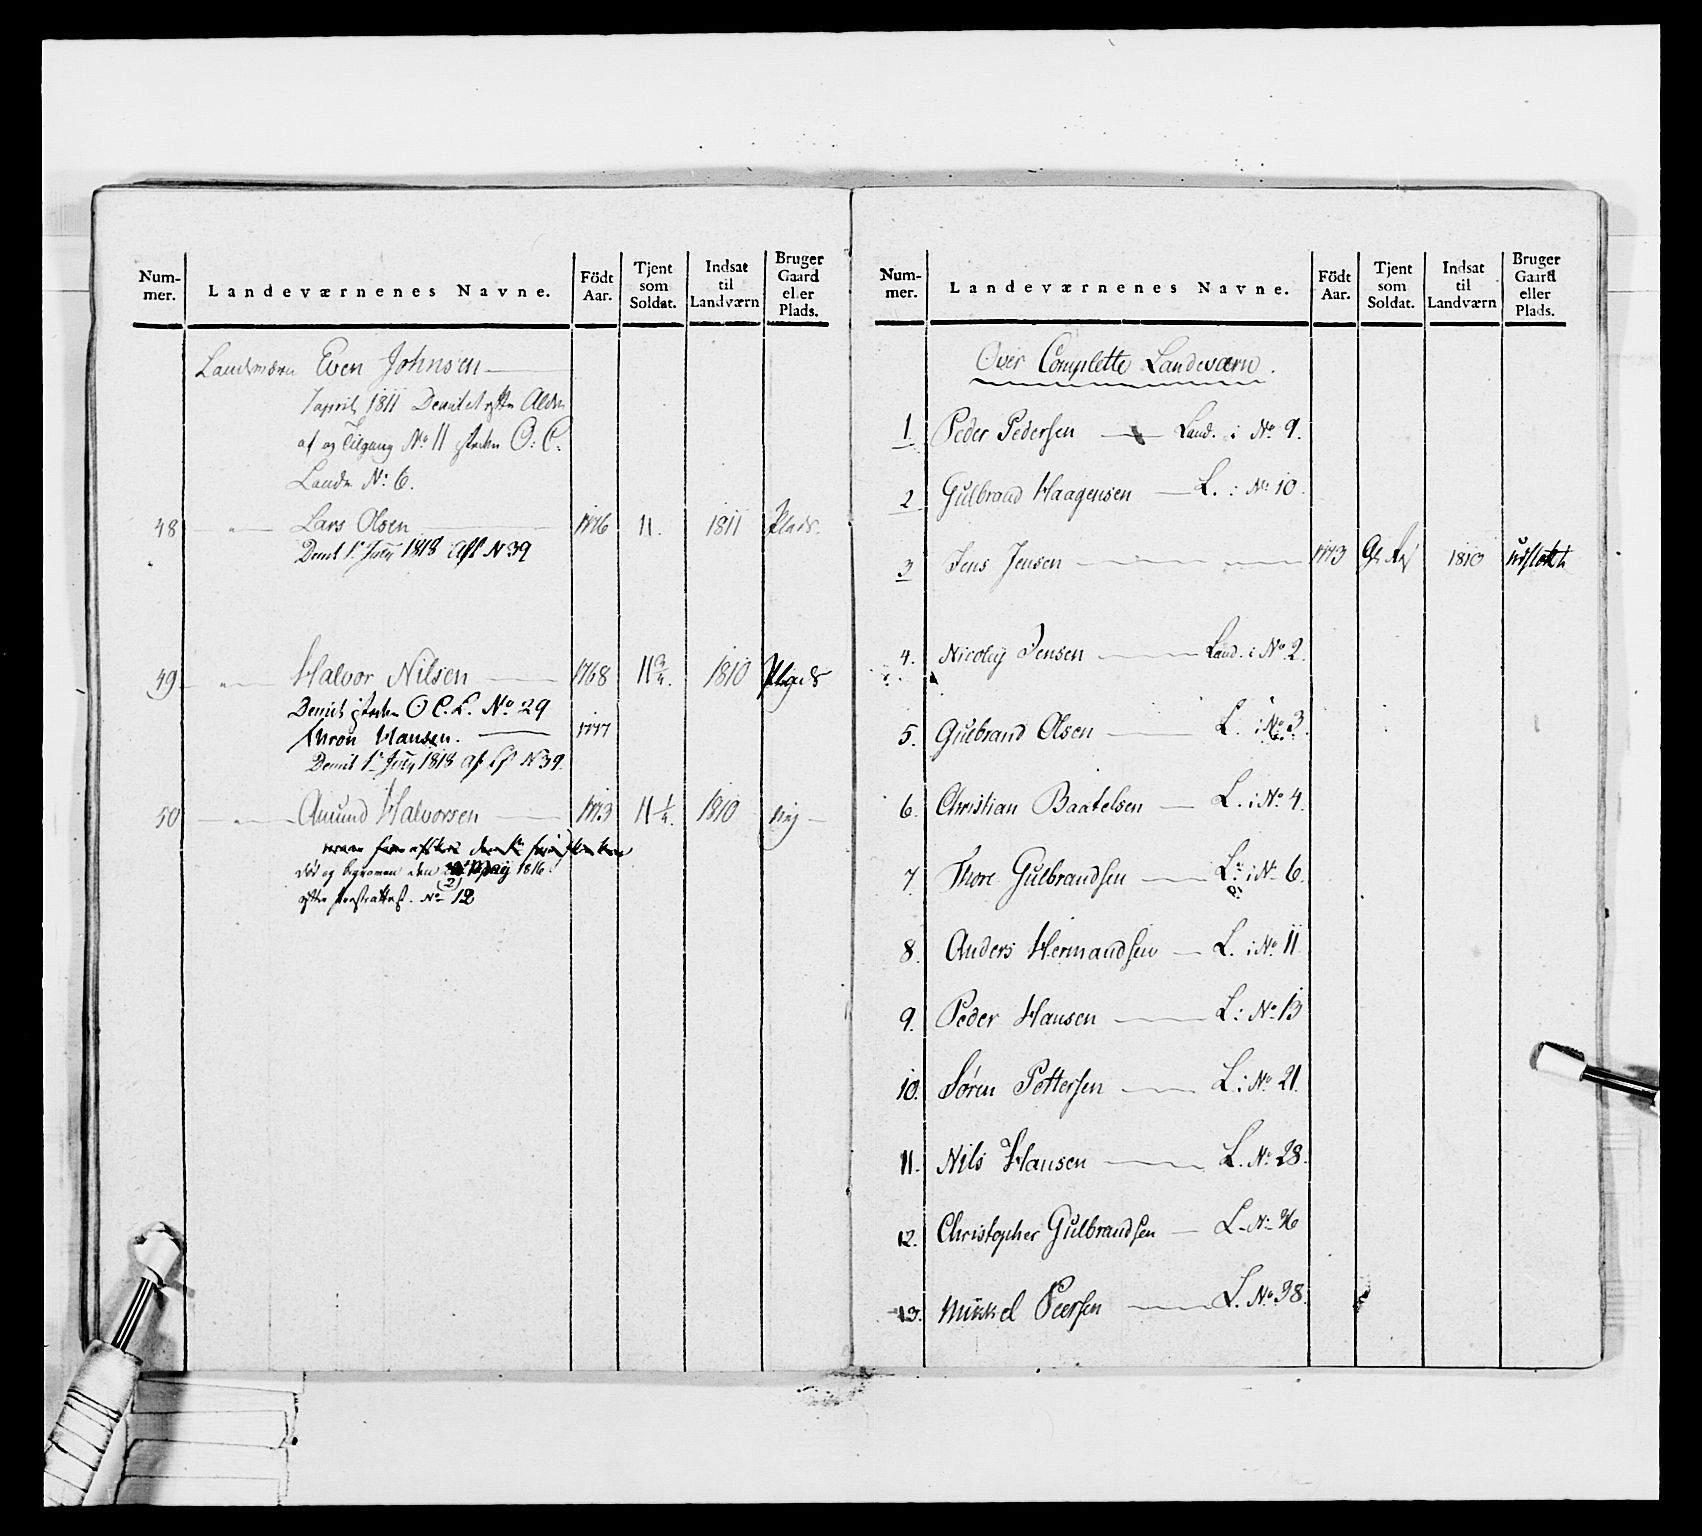 Num-
mer.
Landeværnenes Navne.
Födt
Aar.
Tjent
som
Soldat.
Indsat
til
Landværn
Bruger
Gaard
eller
Plads.
Landværn Even Johnsen
1 april 1811 Demitet efter Alder
af og Tilgang No 11 O: C.
Landv N: 6.
48 " Lars Olsen 1776 11. 1811 Plads.
Demt 1. July 1818 Afl N 39
49 " Halvor Nilsen 1768 11 3/4. 1810 Plads
Demit O C. L. No 29
Thron Hansen. 1777
Demit 1 July 1818 af N 39.
50 " Amund Halvorsen 1773 11 1/4. 1810
død og begraven den Maij 1816
(2)
efter No 12
Num-
mer.
Landeværnenes Navne.
Födt
Aar.
Tjent
som
Soldat.
Indsat
til
Landværn
Bruger
Gaard
eller
Plads.
Over Complette Landeværn.
1 Peder Pedersen Land. i No 9.
2 Gulbrand Haagensen L. i No 10.
3 Jens Jensen 1773 1810
4. Nicolaij Jensen Land. i No 2.
5. Gulbrand Olsen L. i No 3.
6. Christian Baatelsen L. i No 4.
7 Thore Gulbrandsen L. i No 6.
8. Anders Hermandsen L. i No 11
9. Peder Hansen L: No 13
10. Søren Pettersen L. i No 21.
11. Nils Hansen L. No 28.
12. Christopher Gulbrandsen L. No 36
13. Mikkel Peersen L. No 38.